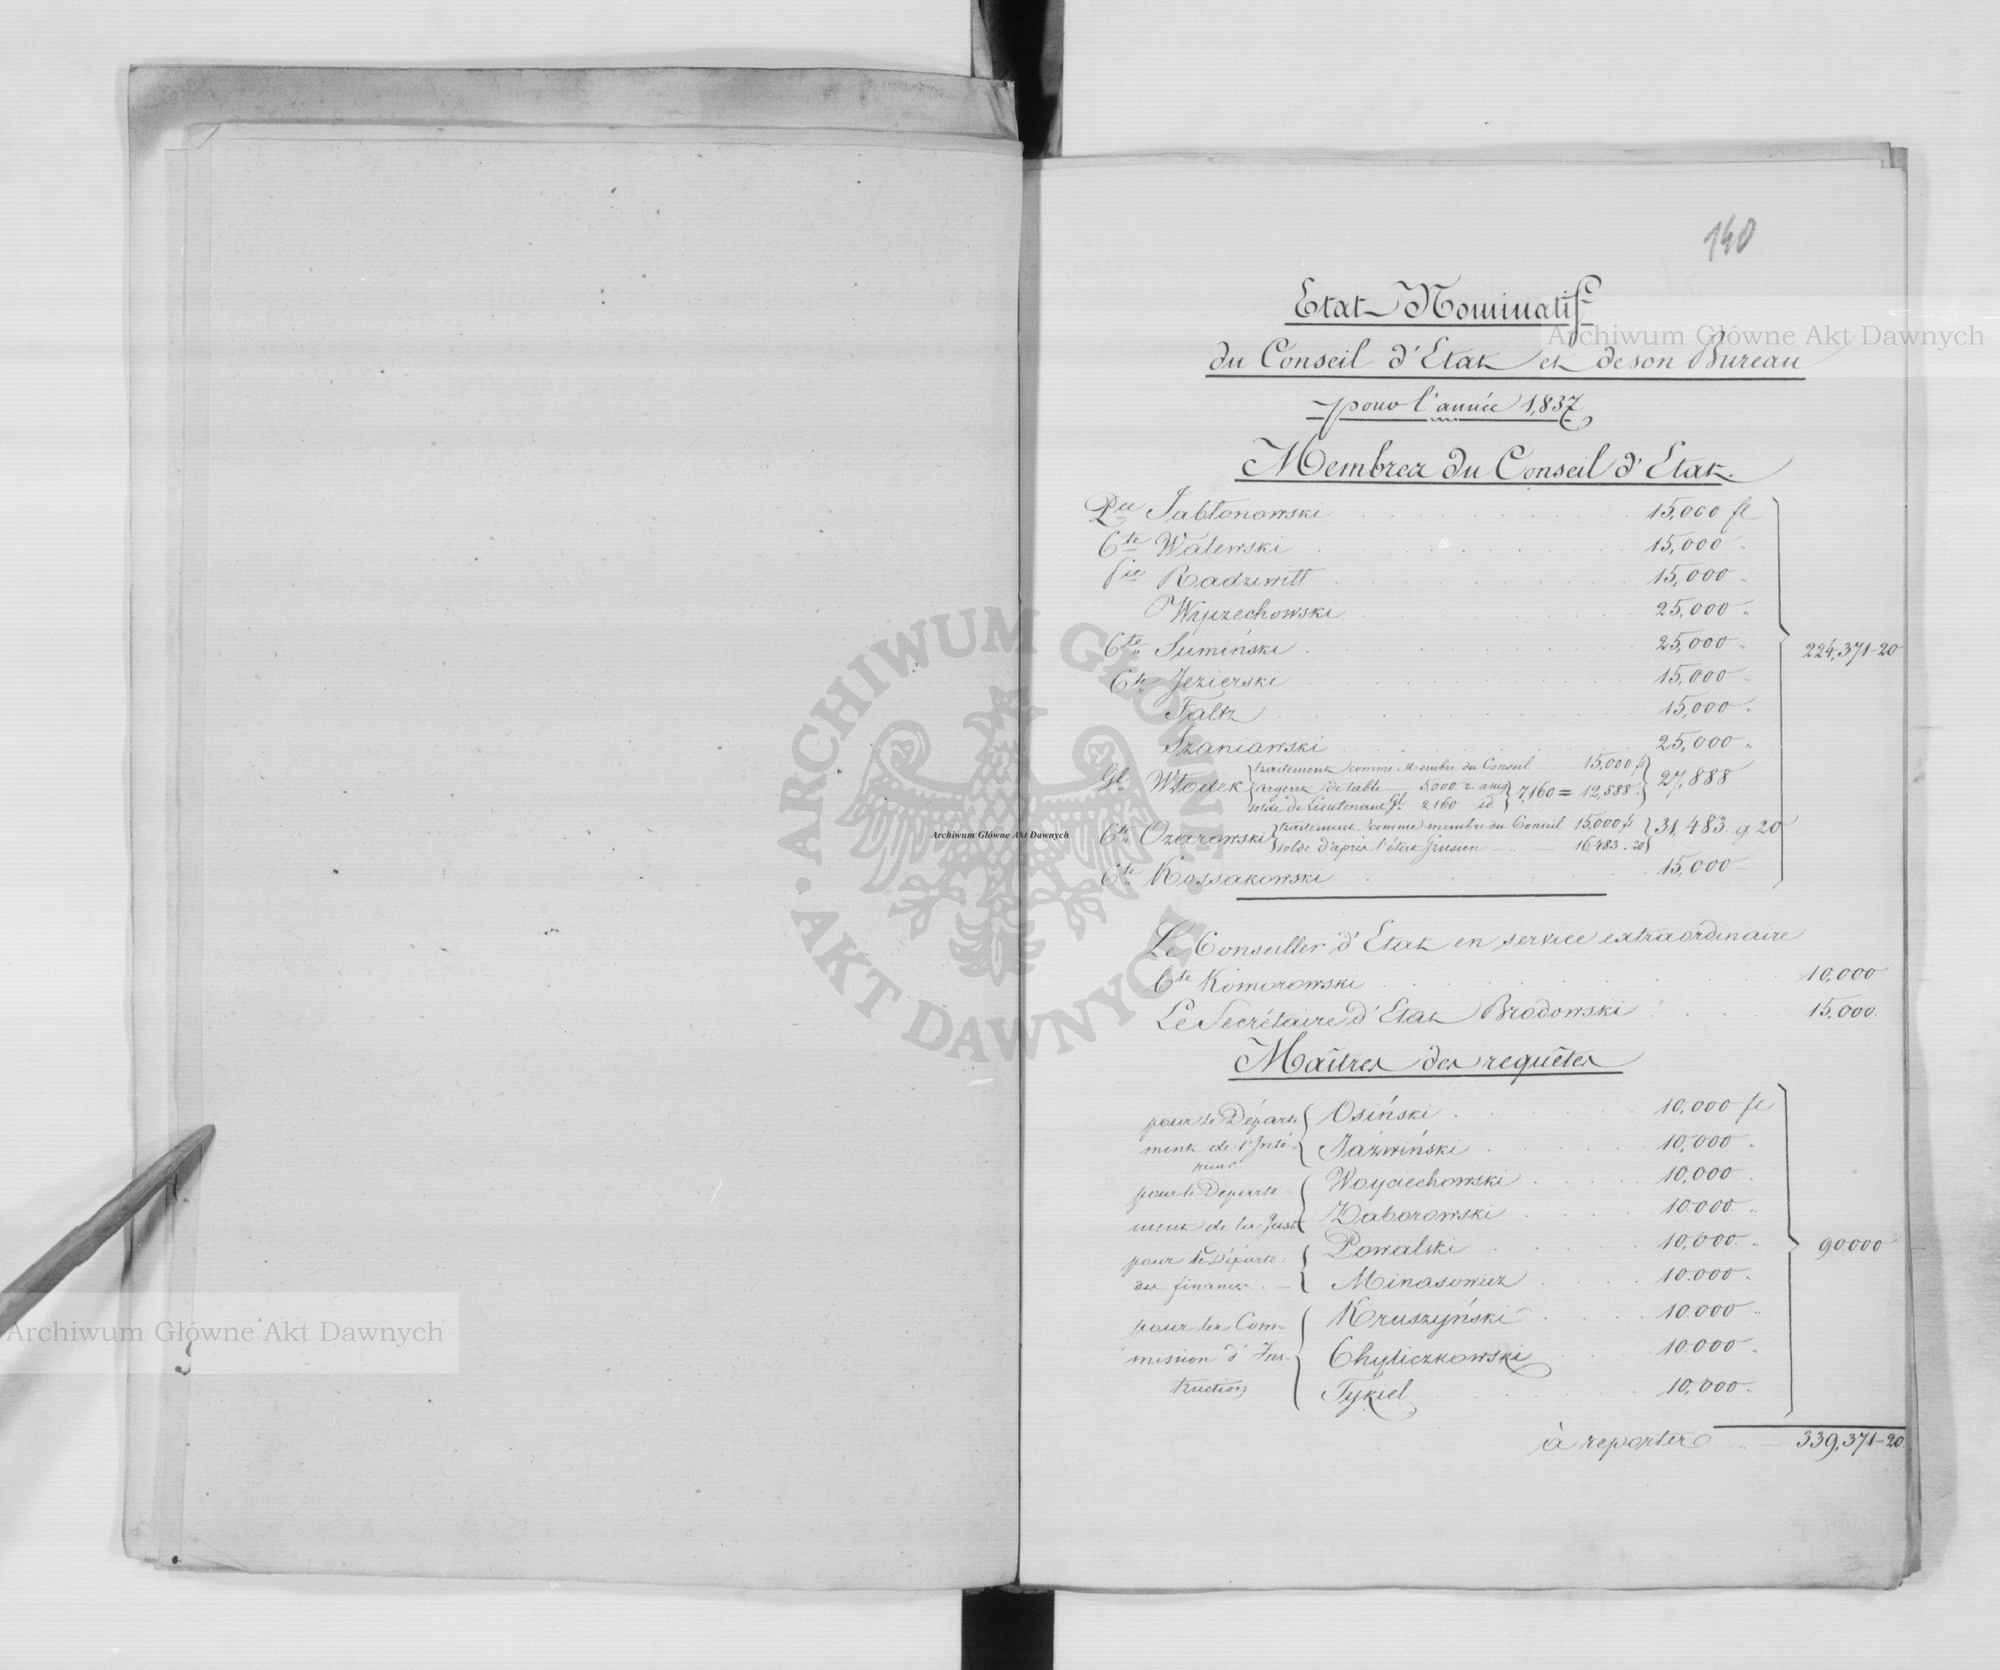 140
Etat Nominatif
du Conseil d'Etat et de son Bureau
pour l'année 1,837
Membres du Conseil d'Etat.
Pce Jabłonowski 15,000 fl
Cte Walewski 15,000 "
Pce Radziwiłł 15,000 "
Wyczechowski 25,000 "
Cte Sumiński 25,000 "
Cte Jezierski 15,000 "
Faltz 15,000 "
Szaniawski 25,000 "
224,371-20
Gl Włodek
traitement comme Membre du Conseil 15,000 fl
argent de table 5,000 r. assig
solde de Lieutenant Gl 2,160 id.
7,160 = 12,888
27,888
Cte Ozarowski
traitement comme membre du Conseil 15,000 fl
solde d'après l'état 16,483.20
31,483 g 20
Cte Kossakowski 15,000
Le Conseiller d'Etat en service extraordinaire
Cte Komorowski 10,000
Le Secrétaire d'Etat Brodowski 15,000.
Maîtres des requêtes
pour le Départe
ment de l'Inté-
rieur
Osiński 10,000 fl
Jaźwiński 10,000 "
pour le Departe-
ment de la Just
Woyciechowski 10,000 "
Zaborowski 10.000 "
pour le Départe.
des finances. —
Powalski 10,000 "
Minasowicz 10.000 "
pour la Com-
mission d'Ins-
truction
Kruszyński 10.000 "
Chyliczkowski 10.000 "
Tykiel 10,000 "
90.000
à reporter 339,371-20
Archiwum Główne Akt Dawnych
Archiwum Główne Akt Dawnych
Archiwum Główne Akt Dawnych
ARCHIWUM GŁÓWNE · AKT DAWNYCH ·